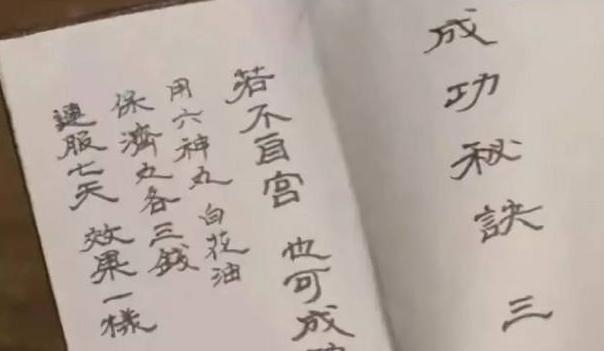 成功秘訣三
若不自宮 也可成
用六神丸 白花油
保濟丸各三錢
連服七天 效果一樣